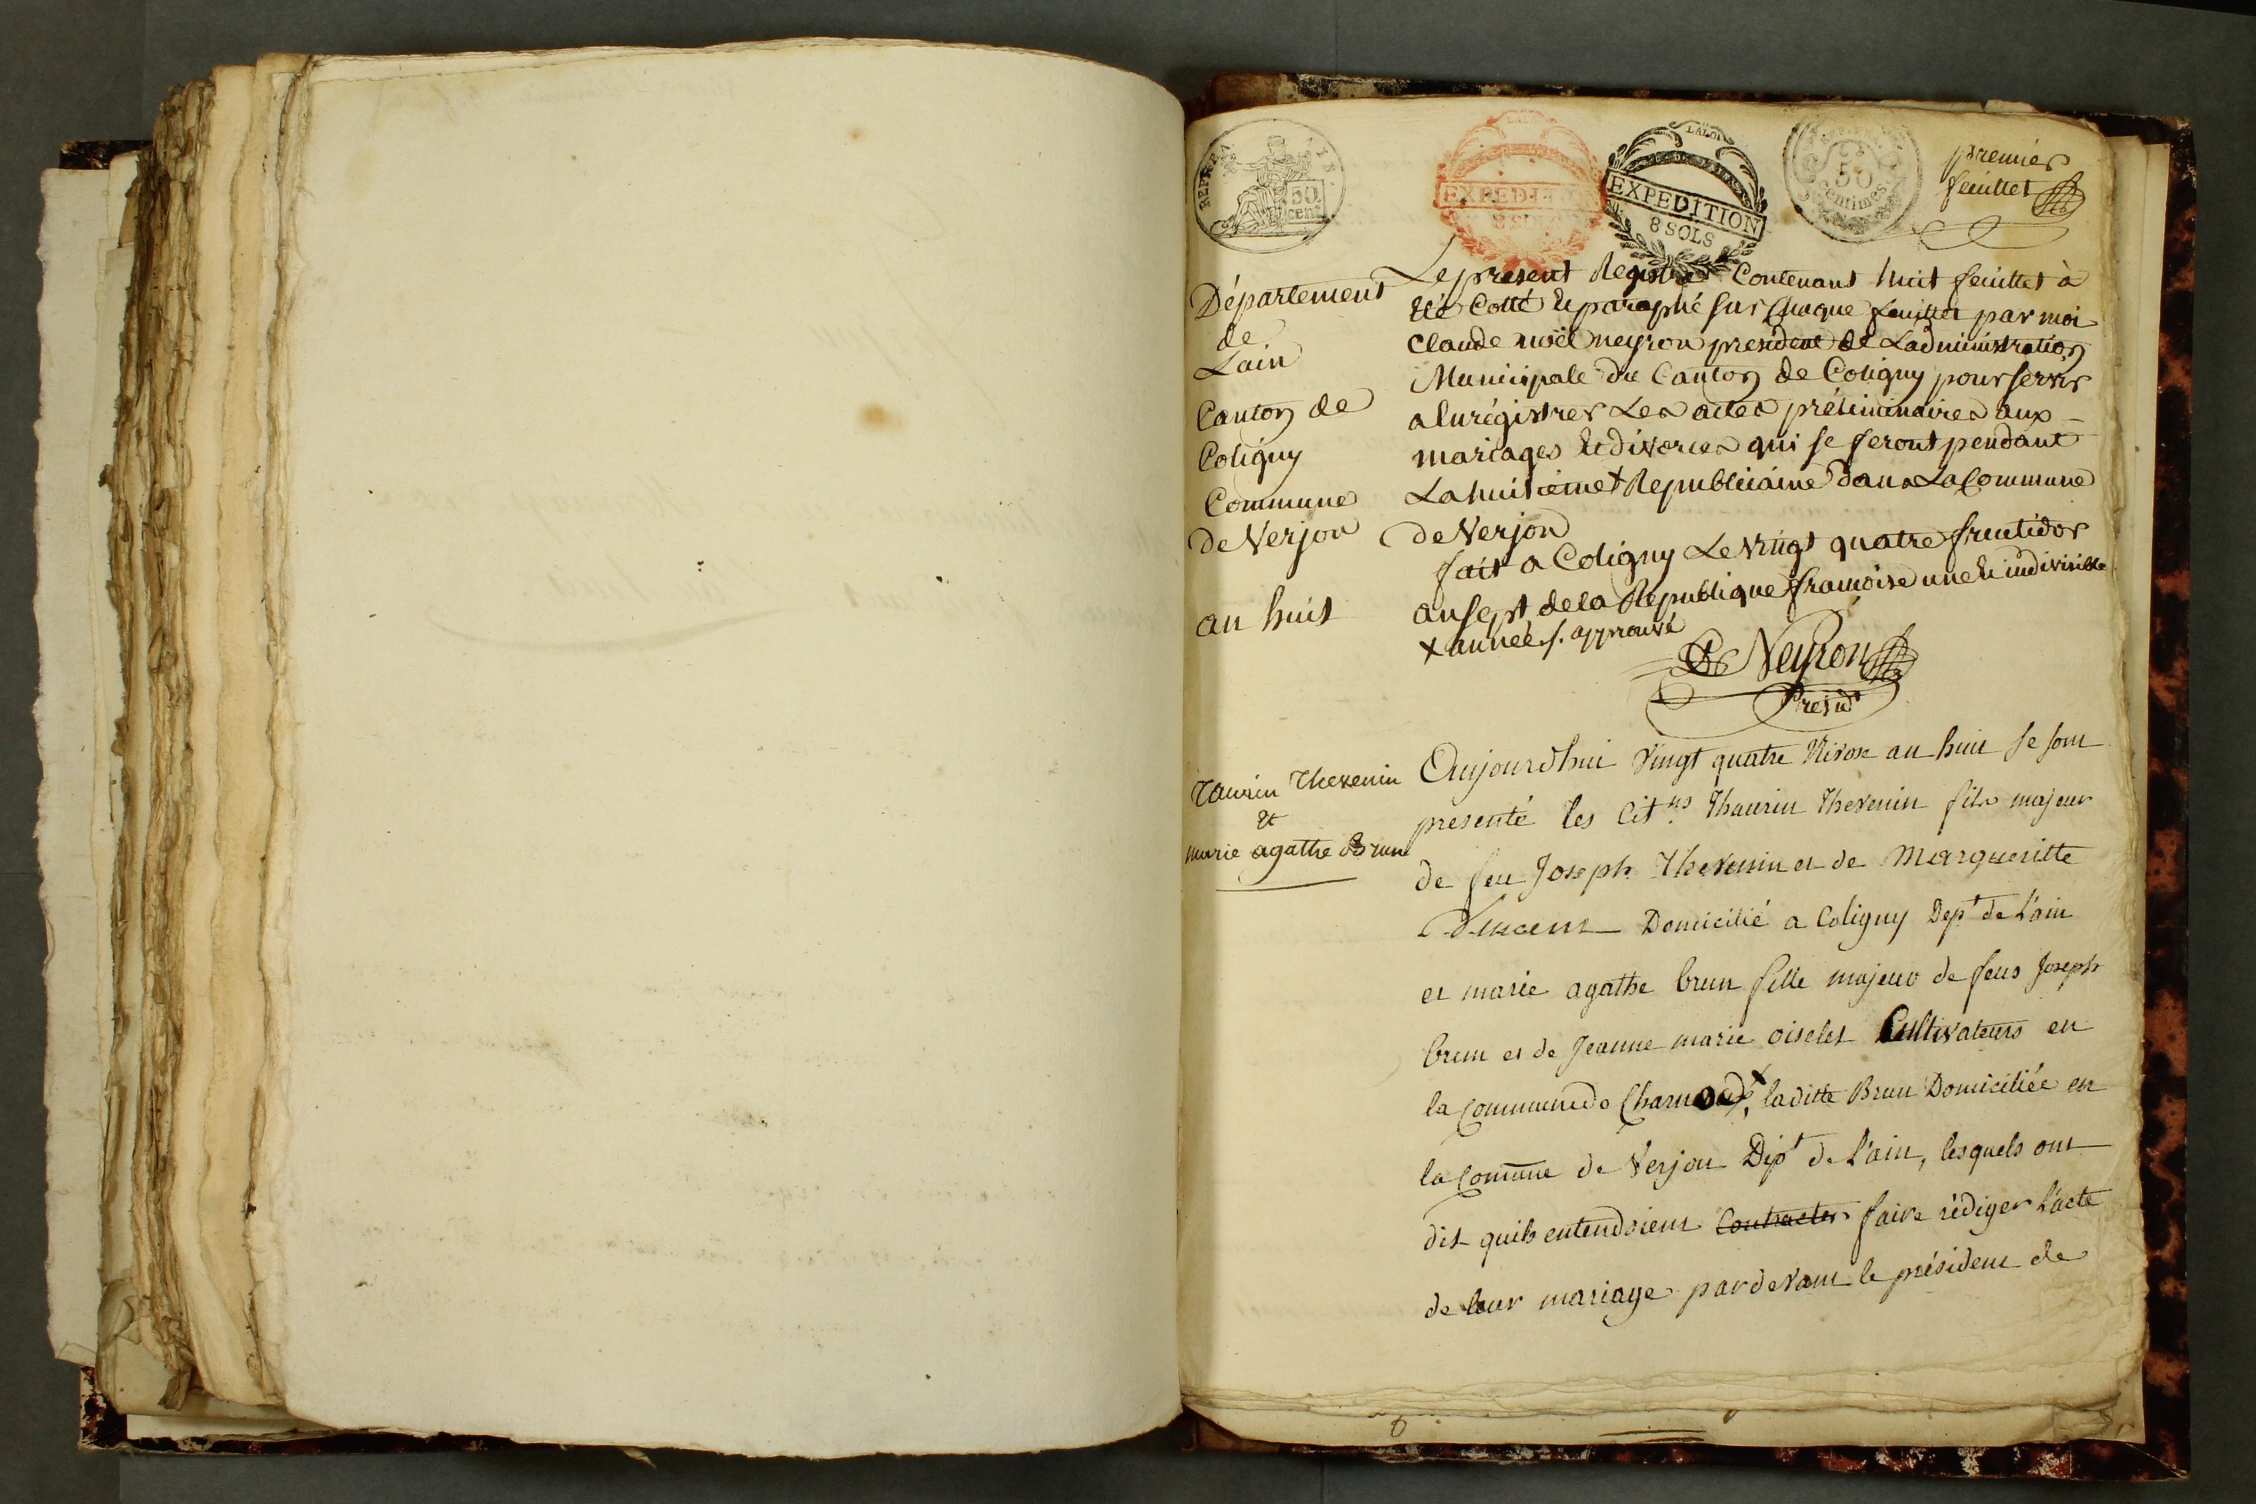 REP. FRA
50
cent
LA LOI
EXPEDITION
8 SOLS
LA LOI
EXPEDITION
8 SOLS
50
centimes
premier
feuillet
Département
de
Lain
Canton de
Coligny
Commune
de Verjon
an huit
Le present Registre Contenant huit feuillet à
Eté Cotté Et paraphé sur Chaque feuillet par moi
Claude noël neyron president de Ladministration
Municipale du Canton de Coligny pour servir
a Enrégistrer Les actes préliminaires aux
mariages Et divorces qui se feront pendant
La huitieme + Republiciaine dans La Commune
de Verjon
fait a Coligny Le vingt quatre fructidor
an sept de la Republique francoise une Et indivisible
+ année /. approuvé
Neyron
Presidt
Taurin Thevenin
Et
marie agathe Brun
Aujourdhui vingt quatre Nivose an huit se sont
presenté les Cit.ns Thaurin Thevenin fils majeur
de feu Joseph Thevenin et de Margueritte
Vincent Domicilié a Coligny Dept de L'ain
et marie agathe brun fille majeur de feus Joseph
brun et de Jeanne marie oiselet Cultivateurs en
la Commune de Charnod +, laditte Brun Domiciliée en
la Comune de Verjon Dept de L'ain, lesquels ont
dit quils entendoient Contracter faire rédiger L'acte
de leur mariage pardevant le président de